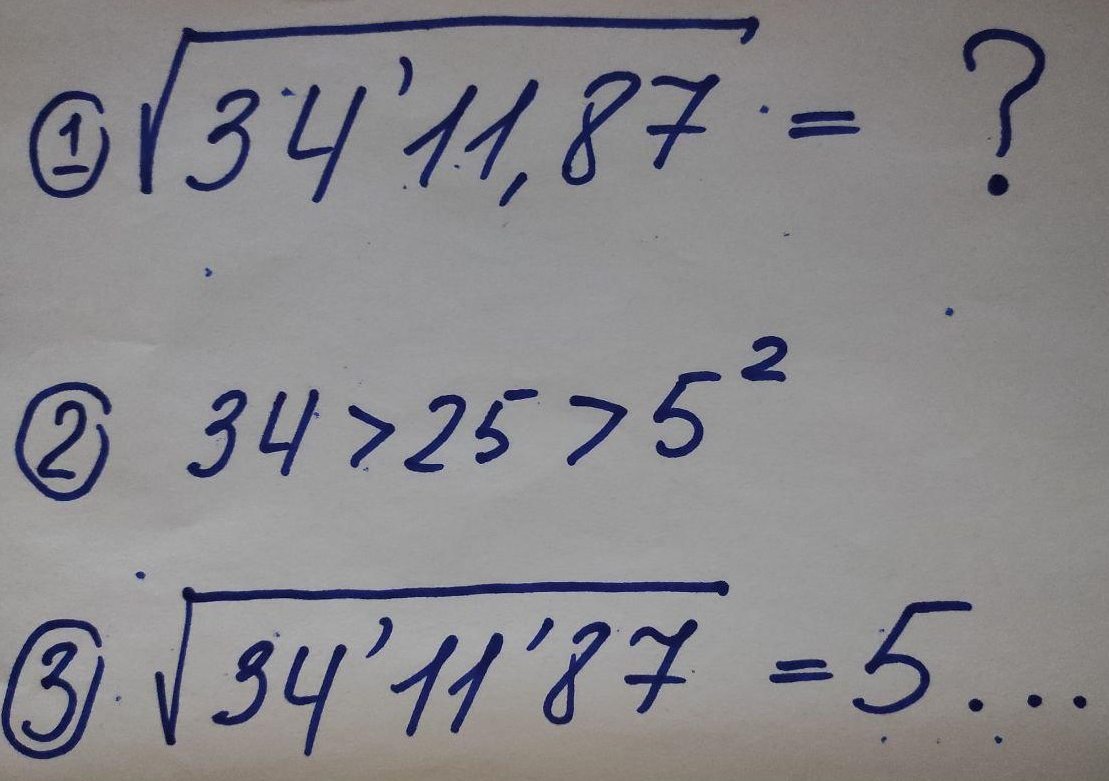 ① √34'11,87 = ?
② 34 > 25 > 5²
③ √34'11'87 = 5...